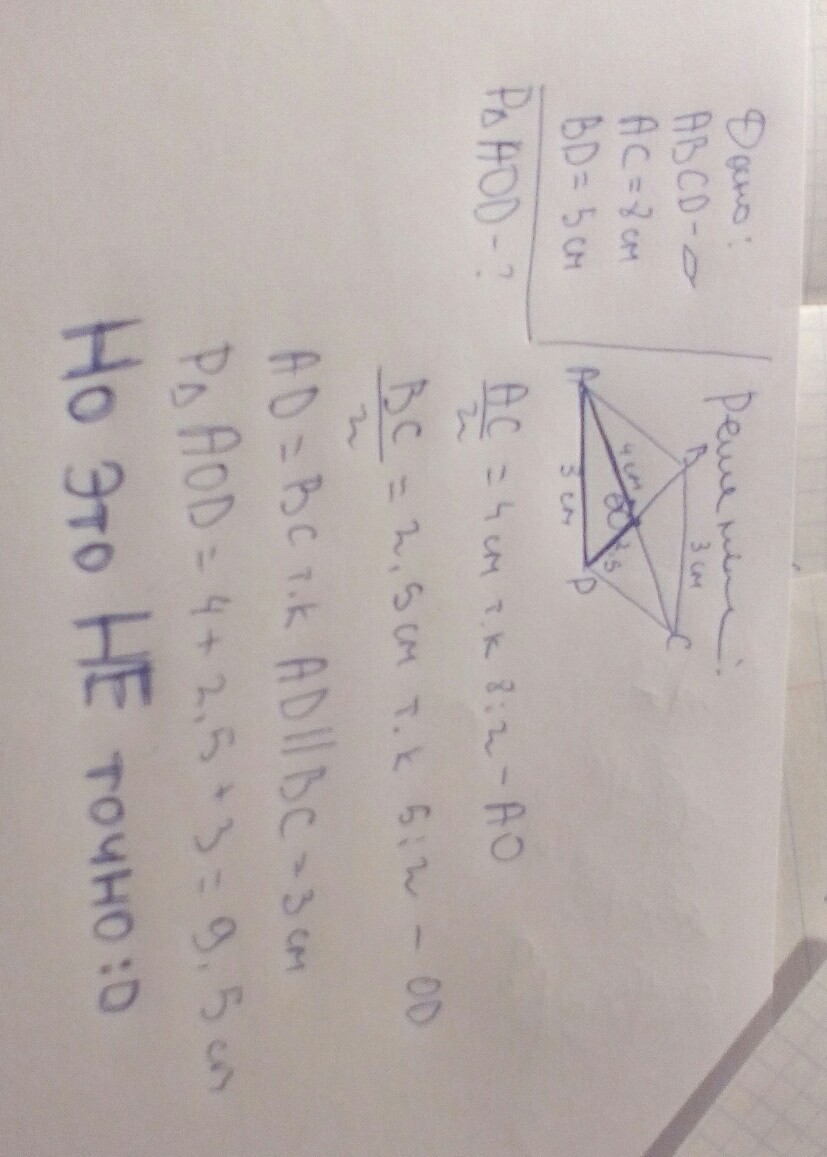 Дано:
ABCD - ▱
AC = 8 см
BD = 5 см
P△ AOD - ?
Решение:
A
B
C
D
O
3 см
4 см
2,5
3 см
AC/2 = 4 см т.к 8:2 - AO
BC/2 = 2,5 см т.к 5:2 - OD
AD = BC т.к AD || BC = 3 см
P△ AOD = 4 + 2,5 + 3 = 9,5 см
НО ЭТО НЕ ТОЧНО :D